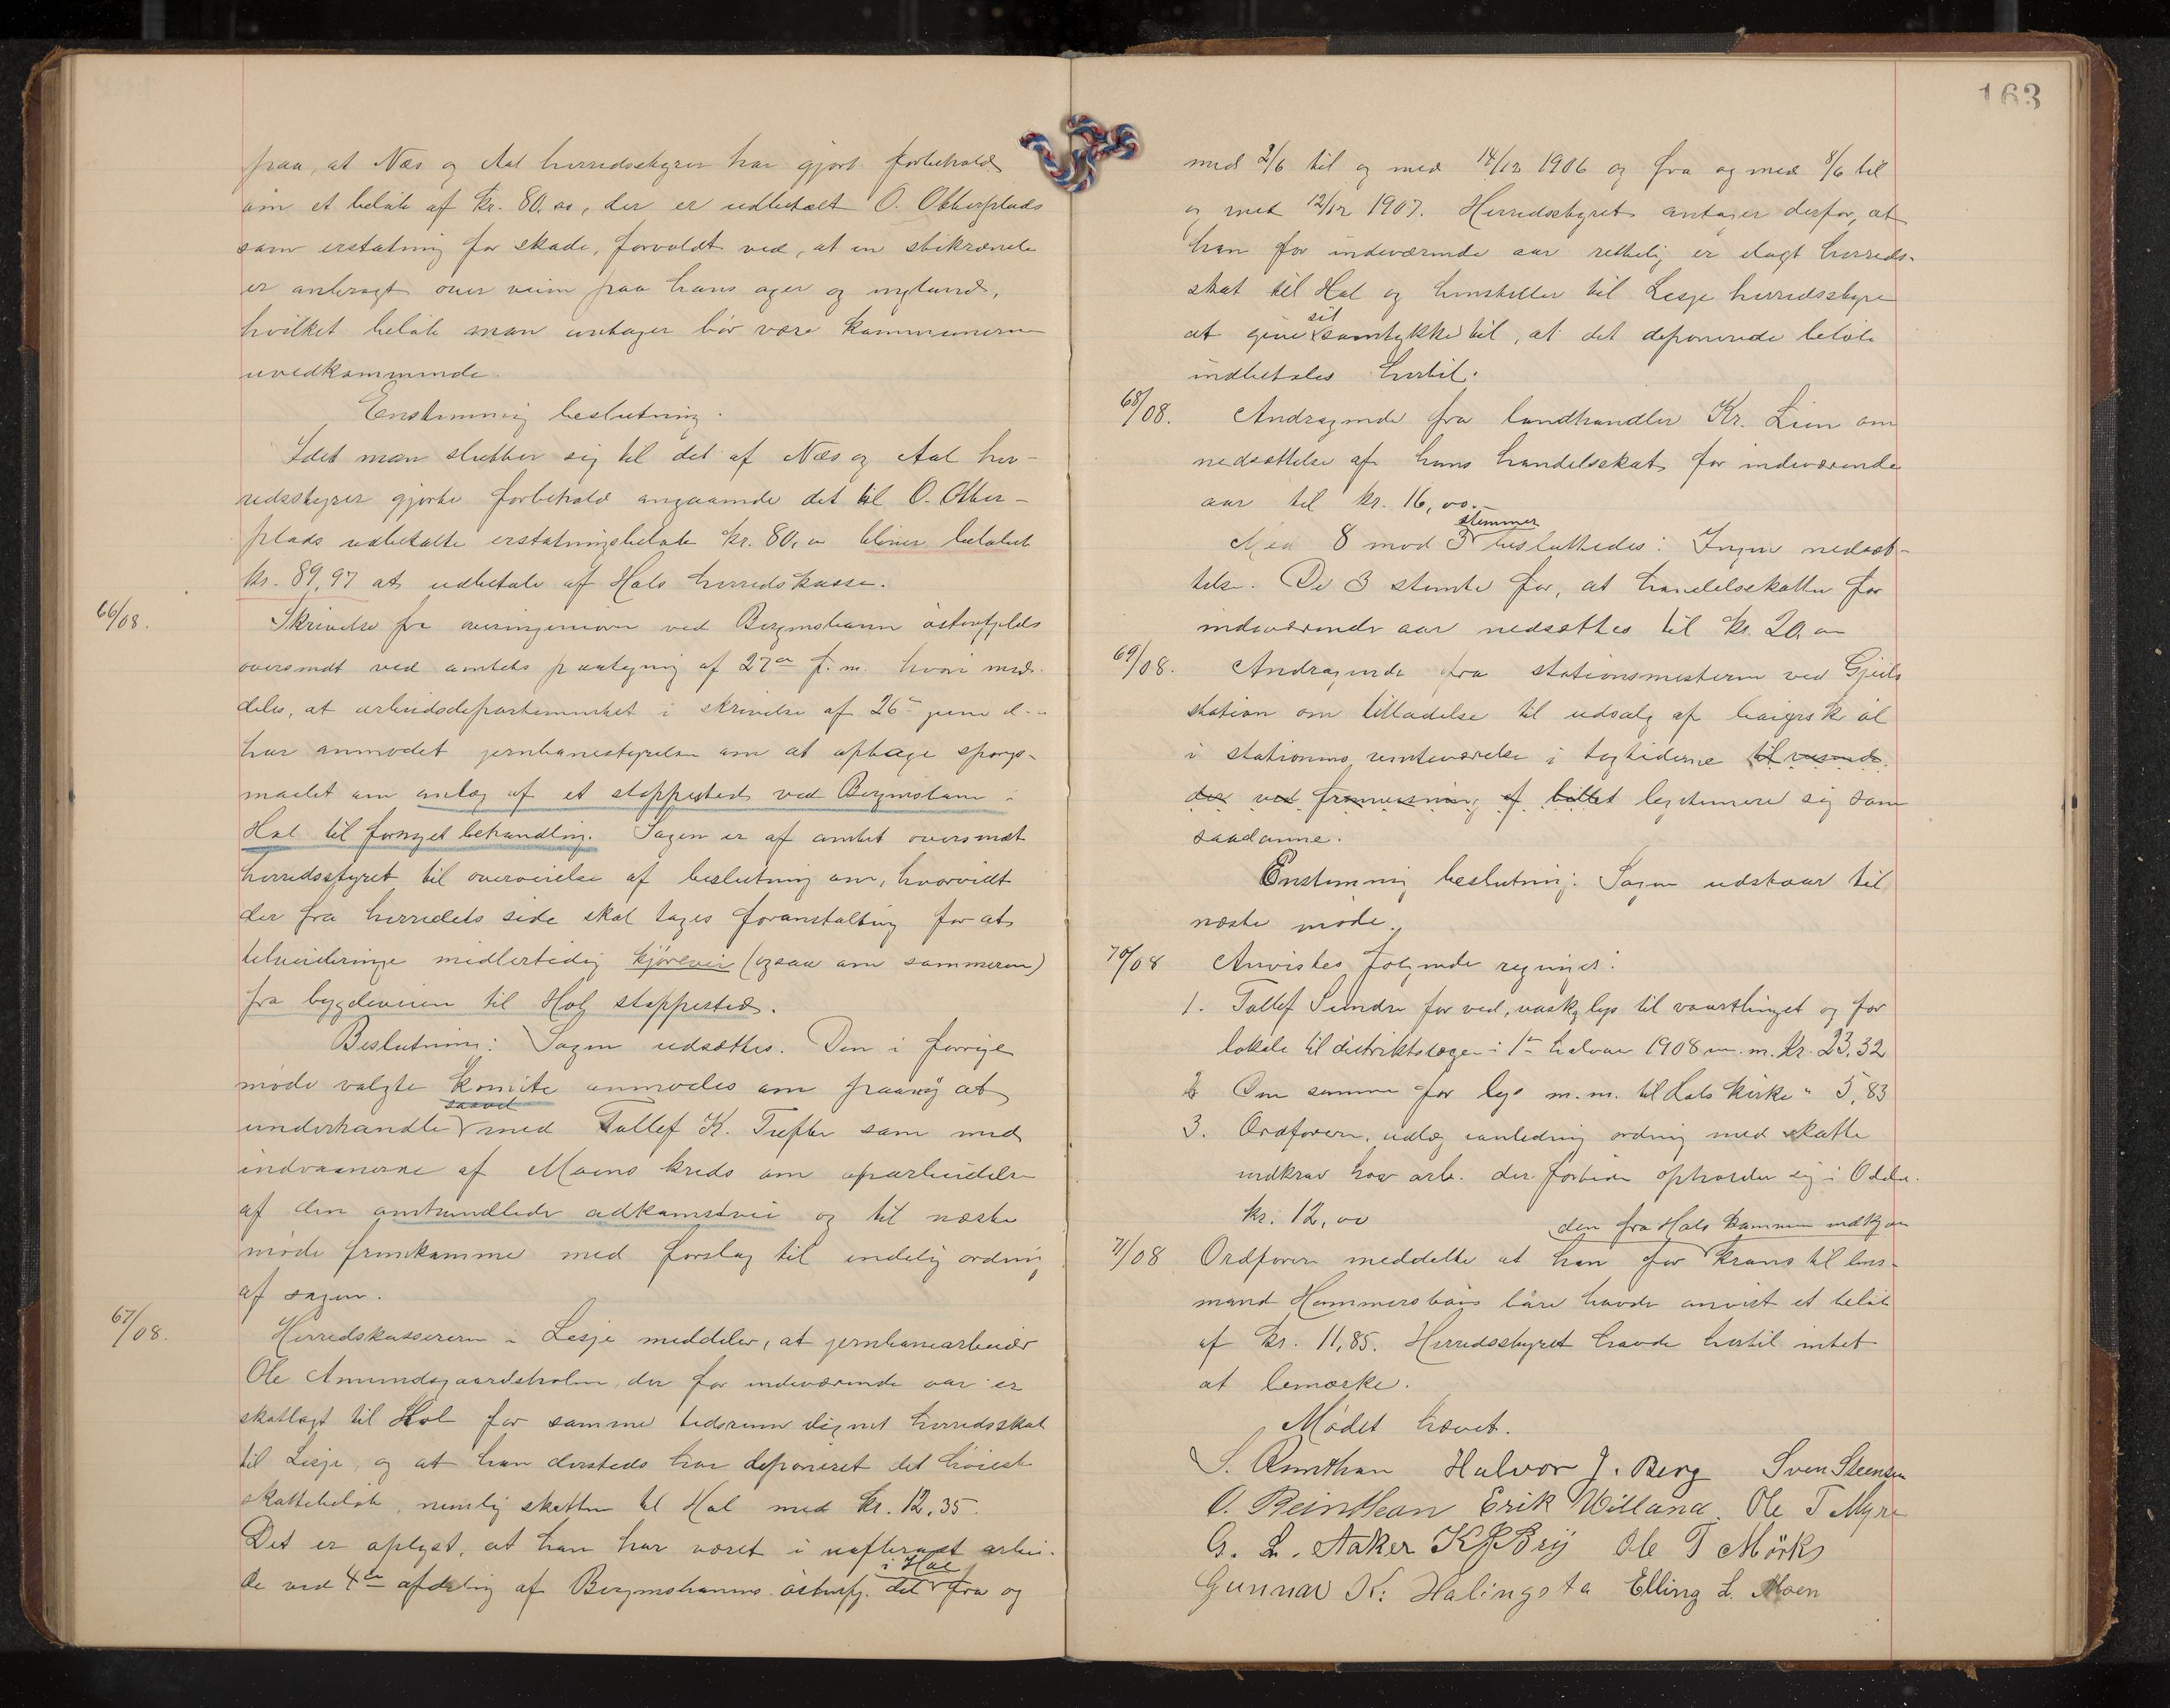 paa, at Næs og Aal herredsstyrer har gjort forbehold
om et beløb af kr. 80.00, der er udbetalt O. Otterplads
som erstatning for skade, forvoldt ved, at en stikrænde
er anbragt over veien paa hans ager og england,
hvilket beløb man antager bør være kommunerne
uvedkommende.
Enstemmig beslutning.
Idet man slutter sig til det af Næs og Aal her-
redsstyrer gjorte forbehold angaaende det til O. Otter-
plads udbetalte erstatningsbeløb kr. 80,00 bliver beløbet
kr. 89,97 at udbetale af Hols herredskasse.
66/08.
Skrivelse fra overingeniøren ved Bergensbanen østenfjelds
oversendt ved amtets paategning af 27de f. m. hvori med-
deles, at arbeidsdepartementet i skrivelse af 26de juni d. a.
har anmodet jernbanestyrelsen om at optage spørgs-
maalet om anlæg af et stoppested ved Bergensbanen i
Hol til fornyet behandling. Sagen er af amtet oversendt
herredsstyret til overveielse af beslutning om, hvorvidt
der fra herredets side skal tages foranstaltning for at
tilveiebringe midlertidig kjørevei (ogsaa om sommeren)
fra bygdeveien til Hol stoppested.
Beslutning: Sagen udsættes. Den i forrige
møde valgte komite anmodes om paany at
saavel
underhandle med Tollef K. Tufte som med
indvaanerne af Moens kreds om oparbeidelse
af den omhandlede adkomstvei og til næste
møde fremkomme med forslag til endelig ordning
af sagen.
67/08.
Herredskassereren i Lesje meddeler, at jernbanearbeider
Ole Amundsgaardsholm, der for indeværende aar er
skatlagt til Hol for samme tidsrum lignet herredsskat
til Lesje, og at han dersteds har deponeret det høieste
skattebeløb, nemlig skatten til Hol med kr. 12.35.
Det er oplyst, at han har været i uafbrudt arbei-
i Hol
de ved 4de afdeling af Bergensbanens østenfj. del fra og
163
med 2/6 til og med 14/12 1906 og fra og med 8/6 til
og med 12/12 1907. Herredsstyret antager derfor, at
han for indeværende aar rettelig er ilagt herreds-
skat til Hol og henstiller til Lesje herredsstyre
sit
at give samtykke til, at det deponerede beløb
indbetales hertil.
68/08.
Andragende fra landhandler Kr. Lien om
nedsættelse af hans handelsskat for indeværende
aar til kr. 16,00.
stemmer
Med 8 mod 3 besluttedes: Ingen nedsæt-
telse. De 3 stemte for, at handelsskatten for
indeværende aar nedsættes til kr. 20.00
69/08.
Andragende fra stationsmesteren ved Gjeilo
station om tilladelse til udsalg af baiersk øl
i stationens venteværelse i togtiderne til reisende
der ved fremvisning af billet legitimere sig som
saadanne.
Enstemmig beslutning: Sagen udstaar til
næste møde.
70/08
Anvistes følgende regninger:
1. Tollef Sundre for ved, vask og lys til vaartinget og for
lokale til distriktslægen i 1ste halvaar 1908 m. m. kr. 23,32
2. Den samme for lys m. m. til Hols kirke " 5,83
3. Ordføreren, udlæg i anledning ordning med skatte
indkrav hos arb. der fortiden opholder sig i Odda.
kr. 12,00
den fra Hols kommune indkjøbte
71/08
Ordføreren meddelte at han for krans til lens-
mand Hammersbøns båre havde anvist et beløb
af kr. 11,85. Herredsstyret havde hertil intet
at bemærke.
Mødet hævet.
Halvor J. Berg Sven Steensen
O. Reinthon Erik Villand. Ole T Myre
G. L. Aaker Ole T Mörk
Gunnar K. Halingsta Elling L. Moen